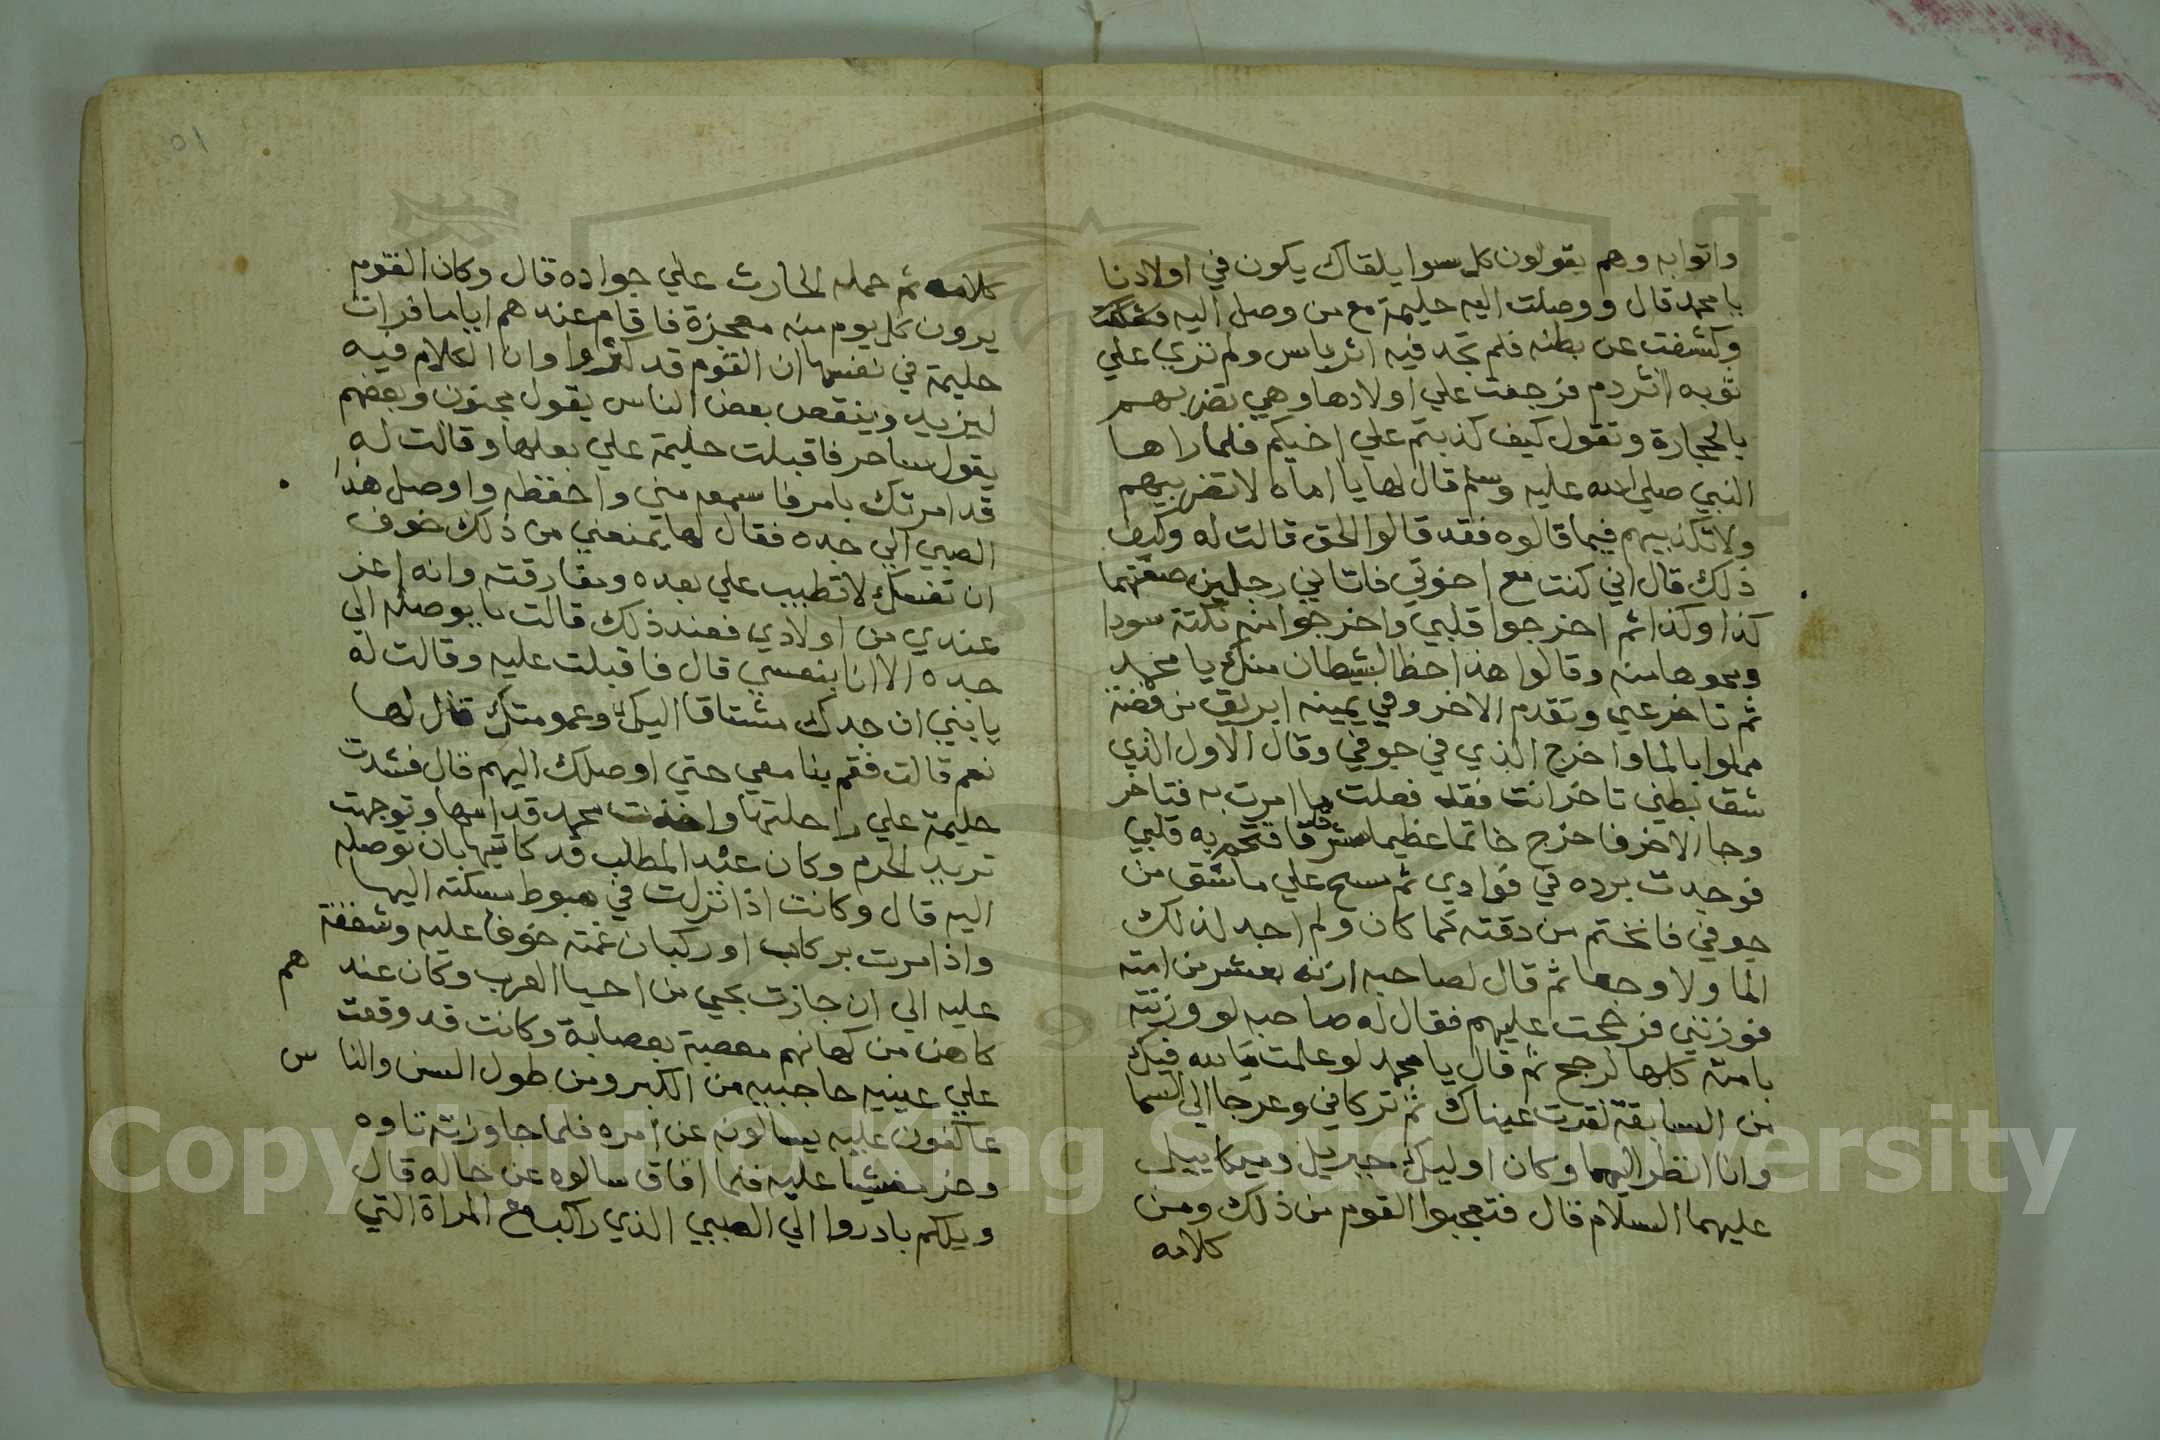 واتوا به وهم يقولون كل سوا يلقاك يكون في اولادنا
يا محمد قال ووصلت اليه حليمة مع من وصل اليه
وكشفت عن بطنه فلم تجد فيه اثر باس ولم تري علي
ثوبه اثر دم فرجعت علي اولادها وهي تضربهم
بالحجارة وتقول كيف كذبتم علي اخيكم فلما راها
النبي صلي الله عليه وسلم قال لها يا اماه لا تضربيهم
ولا تكذبيهم فيما قالوه فقد قالوا الحق قالت له وكيف
ذلك قال اني كنت مع اخوتي فاتاني رجلين صفتهما
كذا وكذا ثم اخرجوا قلبي واخرجوا منه نكتة سودا
ومحوها منه وقالوا هذا حظ الشيطان منك يا محمد
ثم تاخر عني وتقدم الاخر وفي يمينه ابريق من فضة
مملوا بالما واخرج الذي في جوفي وقال الاول الذي
شق بطني تاخر انت فقد فعلت ما امرت به فتاخر
وجا الاخر فاخرج خاتما عظيما مشرقا فختم به قلبي
فوجدت برده في فوادي ثم مسح علي ما شق من
جوفي فانختم من دقته كما كان ولم اجد لذلك
الما ولا وجعا ثم قال لصاحبه ازنه بعشر من امته
فوزنني فرجحت عليهم فقال له صاحبه لو وزنته
بامته كلها لرجح ثم قال يا محمد لو علمت ما لله فيك
من السابقة لقرت عيناك ثم تركاني وعرجا الي السما
وانا انظر اليهما وكان اوليك جبريل وميكاييل
عليهما السلام قال فتعجبوا القوم من ذلك ومن
كلامه
٥١
كلامه ثم حمله الحارث علي جواده قال وكان القوم
يرون كل يوم منه معجزة فاقام عندهم اياما فرات
حليمة في نفسها ان القوم قد اكثروا وان الكلام فيه
ليزيد وينقص بعض الناس يقول مجنون وبعضهم
يقول ساحر فاقبلت حليمة علي بعلها وقالت له
قد امرتك بامر فاسمعه مني واحفظه واوصل هذا
الصبي الي جده فقال لها يمنعني من ذلك خوف
ان تفنعك لا تطيب علي بعده ومفارقته وانه اعز
عندي من اولادي فعند ذلك قالت ما يوصله الي
جده الا انا بنفسي قال فاقبلت عليه وقالت له
يا بني ان جدك مشتاقا اليك وعمومتك قال لها
نعم قالت فقم بنا معي حتي اوصلك اليهم قال فشدت
حليمة علي راحلتها واخذت محمد قدامها وتوجهت
تريد الحرم وكان عبد المطلب قد كاتبها بان توصله
اليه قال وكانت اذا نزلت في هبوط مسكته اليها
واذا مرت بركاب او ركبان غمته خوفا عليه وشفقة
عليه الي ان جازت بحي من احيا العرب وكان عند هم
كاهن من كهانهم معصبة بعصابة وكانت قد وقعت
علي عينيه حاجبيه من الكبر ومن طول السن والنا س
عاكفون عليه يسالونه عن امره فلما جاوزته تاوه
وخر مغشيا عليه فلما افاق سالوه عن حاله قال
ويلكم بادروا الي الصبي الذي راكب مع المراة التي
Copyright © King Saud University